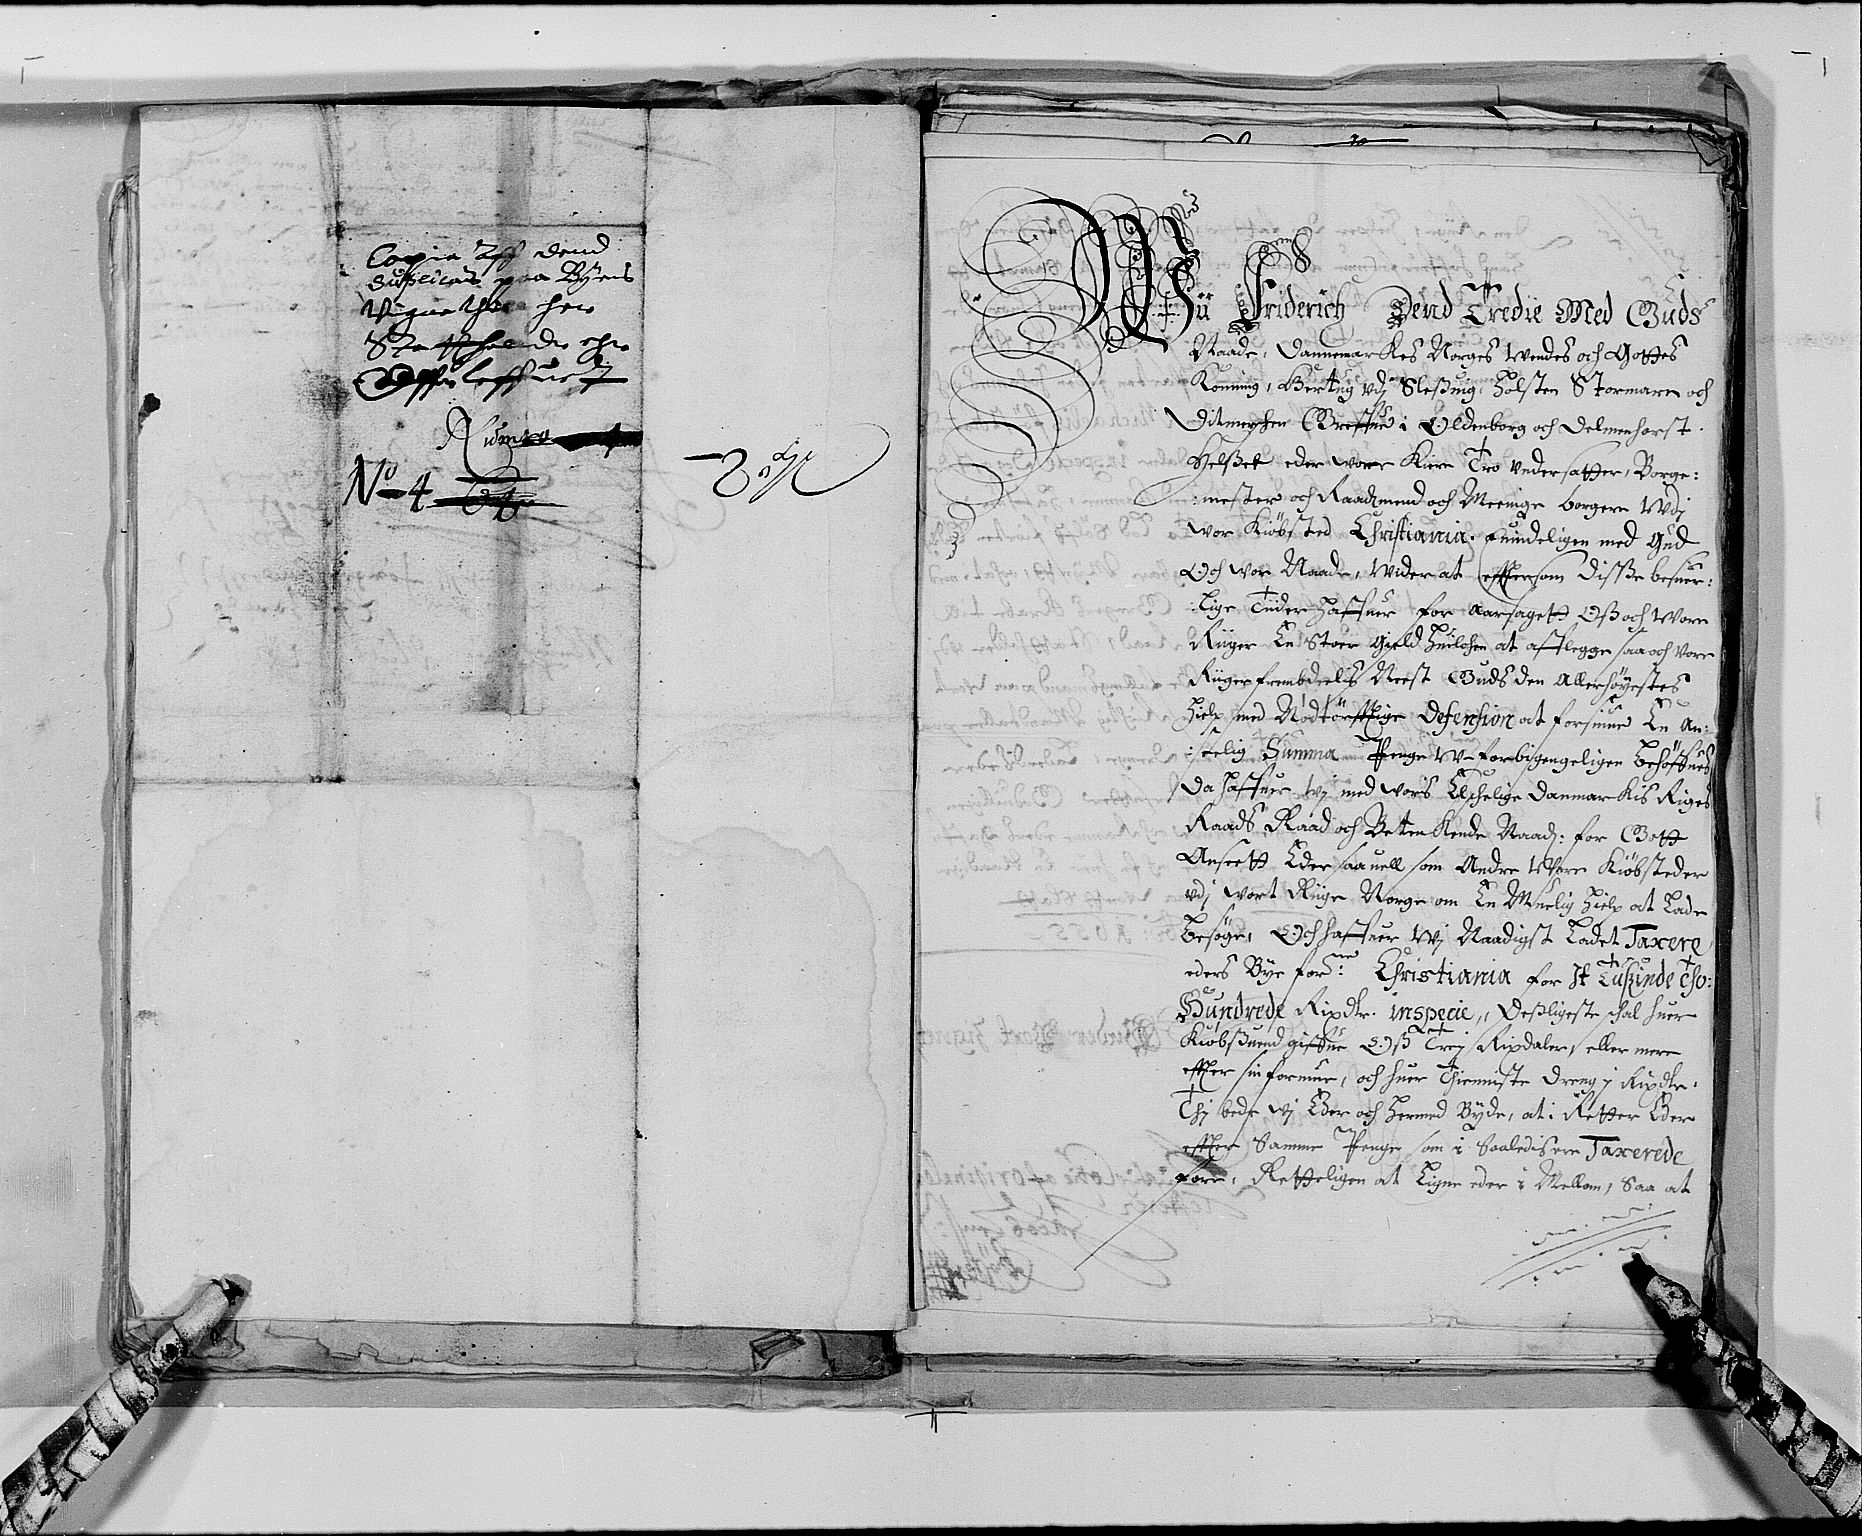 Copia Aff dend
Suplicatz paa Byens
Vegne til her
Statholder
offuerleffuert
Numero 4
No 4
Wii Friderich Dend Tredie Med Guds
Naade, Dannemarkes Norges Wendes och Gottes
Konning, Hertug vdj Sleßuig Holsten Stormarn och
Ditmerschen Greffue i Oldenborg och Delmenhorst.
Helset eder wore Kiere Tro Vndersatter, Borge:
:mester och Raadmend och Meenige borgere Wdj
wor Kiøbsted Christiania. kundeligen med Gud
Och wor Naade, Wider at efftersom Disse besuer:
:lige Tider haffuer foraarsagett Oß och Wore
Riiger En Stoer Gield huilchen at afflegge saa och vore
Riiger frembdeelis Neest Guds den Allerhøyestes
Hielp med Nødtørfftige Defension at forsiune En An:
:seelig Summa Penge W-forbigengeligen behøffues
Da haffuer wj med wors Elschelige Danmarkis Riges
Raads Raad och Betenkende Naad: for Gott
Anseett Eder saauell som Andre Wore Kiøbsteder
vdj wort Riige Norge om En Muelig Hielp at Lade
besøge, Och haffuer Wj Naadigst Ladet Taxere
eders Bye forne: Christiania for It Tusinde Tho:
Hundrede Rixdlr. inspecie, Desligeste schal huer
Kiøbsuend giffue Oß Trej Rixdaler, eller mere
effter sin formue, och huer Thienniste Dreng j Rixdlr.
Thj bede wj Eder och Hermed Byde, at i Retter Eder
effter Samme Penge som i Saaledis ere Taxerede
fore, Retteligen at Ligne eder i Mellom, Saa at